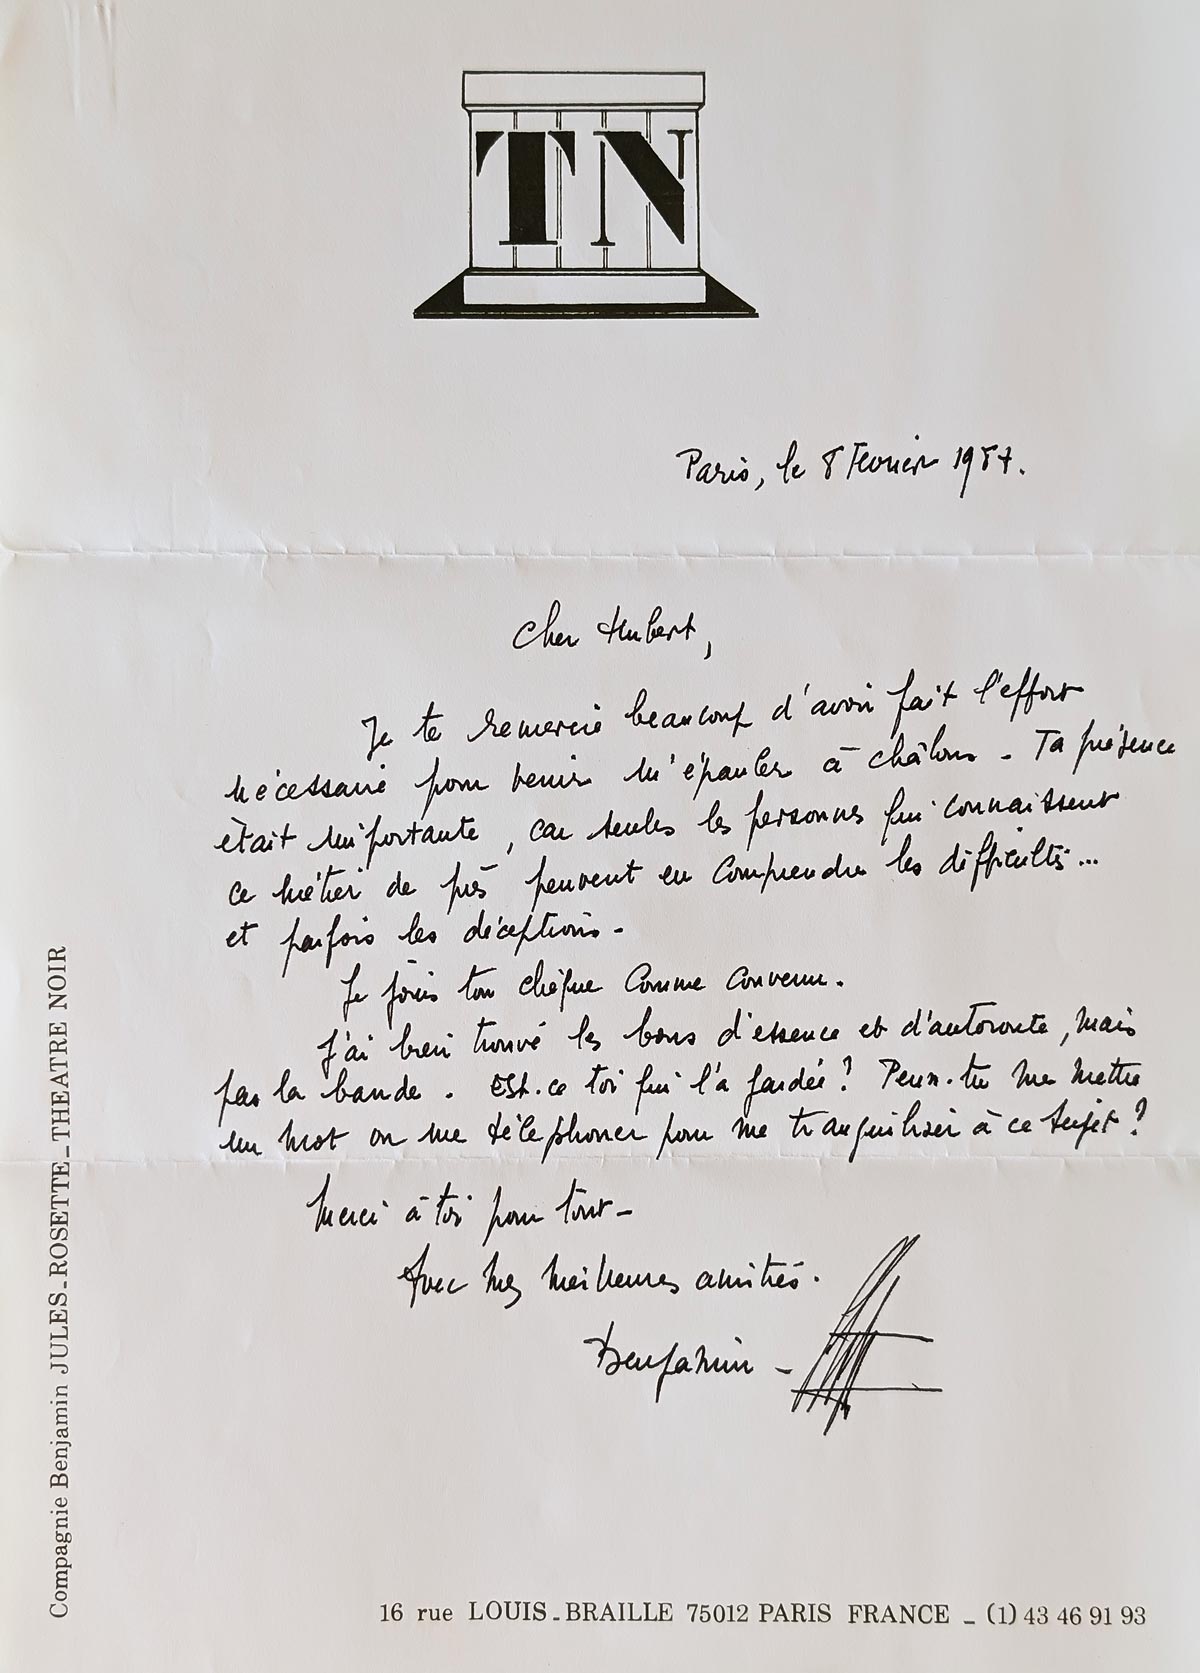 TN
Paris, le 8 Février 1987.
Cher Hubert,
Je te remercie beaucoup d'avoir fait l'effort
nécessaire pour venir m'épauler à châlons - Ta présence
était importante, car seules les personnes qui connaissent
ce métier de près peuvent en comprendre les difficultés...
et parfois les déceptions -
Je joins ton chèque comme convenu.
J'ai bien trouvé les bons d'essence et d'autoroute, mais
pas la bande. Est-ce toi qui l'a gardée ? Peux-tu me mettre
un mot ou me téléphoner pour me tranquiliser à ce sujet ?
Merci à toi pour tout -
Avec mes meilleures amitiés.
Benjamin -
Compagnie Benjamin JULES-ROSETTE_THEATRE NOIR
16 rue LOUIS-BRAILLE 75012 PARIS FRANCE _ (1) 43 46 91 93